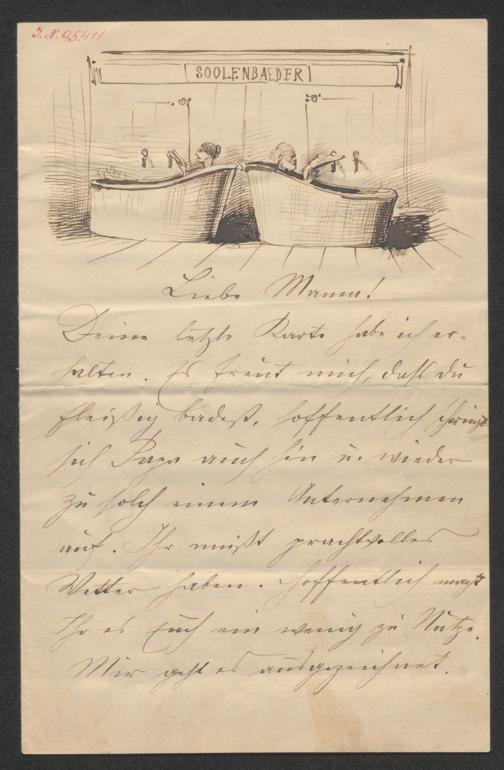 J. N. 95.411
SOOLENBAEDER
Liebe Mama!
Deine letzte Karte habe ich er-
halten. Es freut mich, daß du
fleißig badest, hoffentlich schwingt
sich Papa auch hin u. wieder
zu solch einem Unternehmen
auf. Ihr müßt prachtvolles
Wetter haben. Hoffentlich macht
Ihr es Euch ein wenig zu Nutze.
Mir geht es ausgezeichnet.